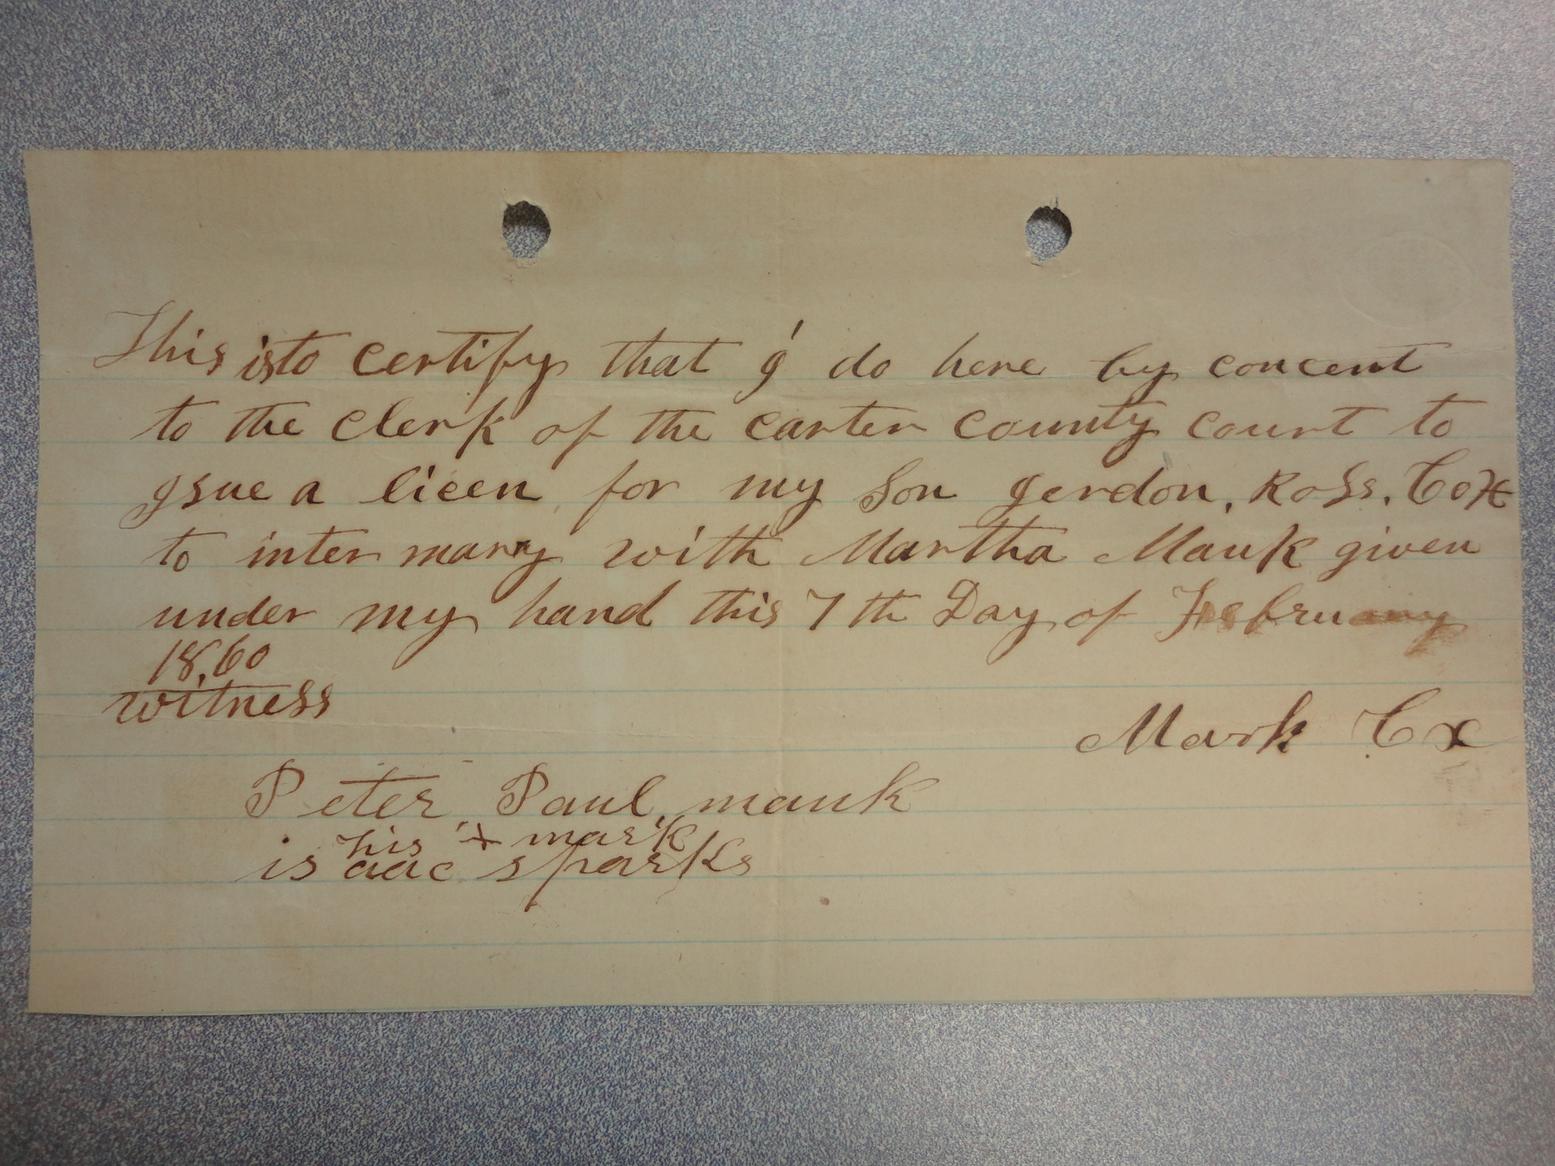 This is to certify that i do here by concent
to the clerk of the carter county court to
isue a licen for my Son gerdon, Ross, Cox
to inter marry with Martha Mauk given
under my hand this 7th Day of February
18,60
witness
Mark Cx
Peter Paul, mauk
his + mark
isaac sparks